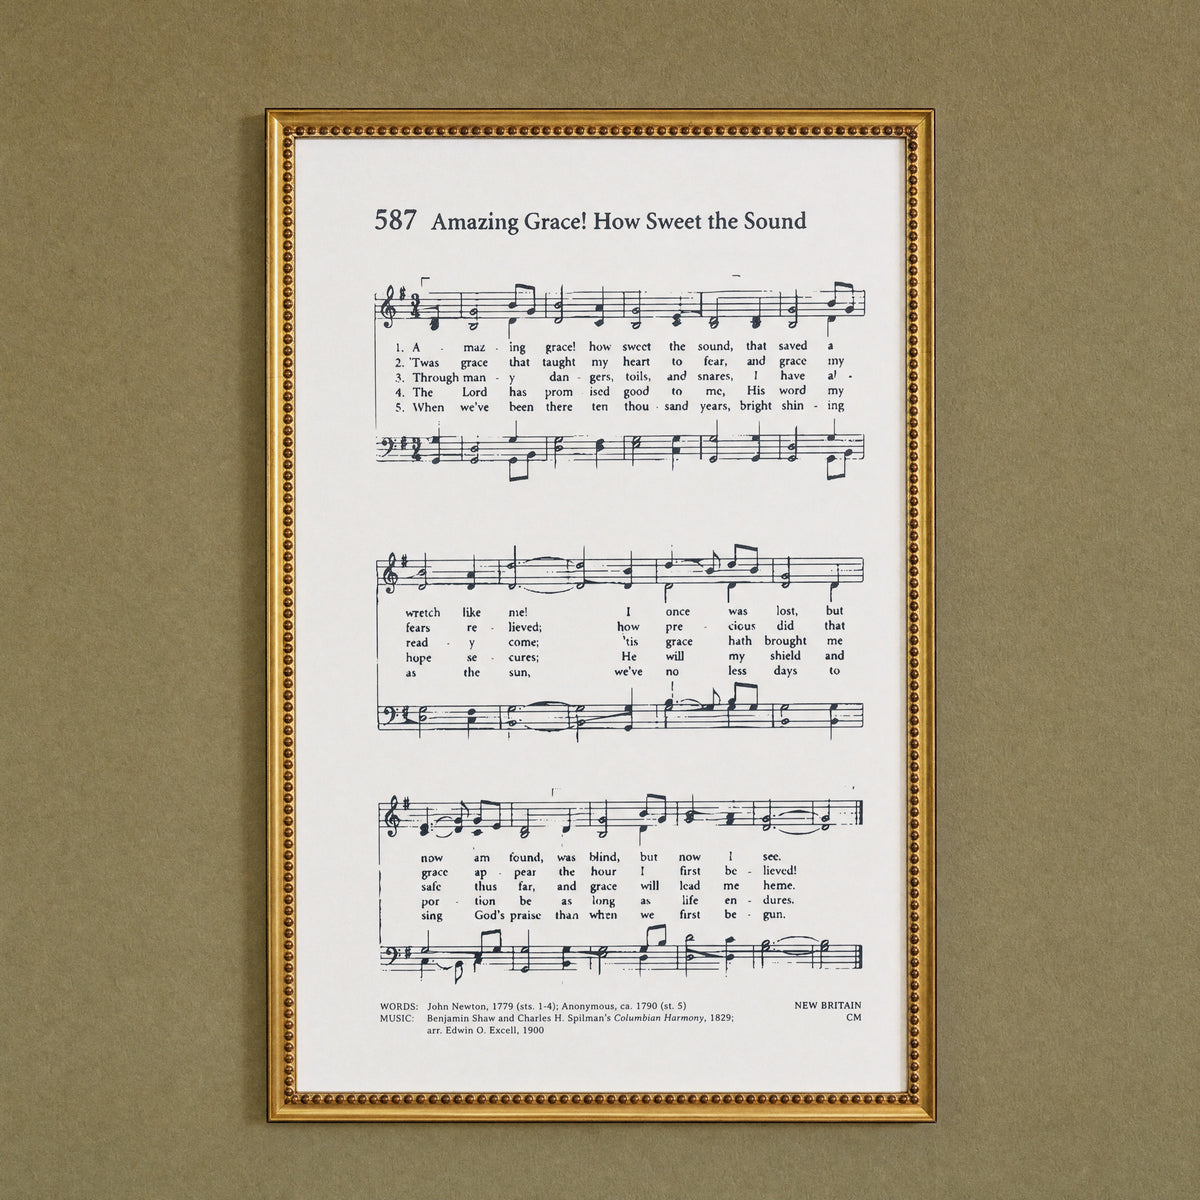 587 Amazing Grace! How Sweet the Sound
1. A - maz - ing grace! how sweet the sound, that saved a
2. 'Twas grace that taught my heart to fear, and grace my
3. Through man - y dan - gers, toils, and snares, I have al -
4. The Lord has prom ised good to me, His word my
5. When we've been there ten thou - sand years, bright shin - ing
wretch like me! I once was lost, but
fears re - lieved; how pre - cious did that
read - y come; 'tis grace hath brought me
hope se - cures; He will my shield and
as the sun, we've no less days to
now am found, was blind, but now I see.
grace ap - pear the hour I first be - lieved!
safe thus far, and grace will lead me heme.
por - tion be as long as life en - dures.
sing God's praise than when we first be - gun.
WORDS: John Newton, 1779 (sts. 1-4); Anonymous, ca. 1790 (st. 5) NEW BRITAIN
MUSIC: Benjamin Shaw and Charles H. Spilman's Columbian Harmony, 1829; CM
arr. Edwin O. Excell, 1900